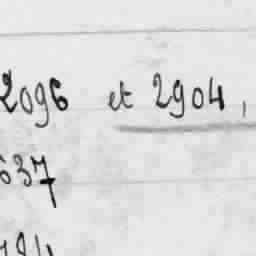 2096 et 2904,
637